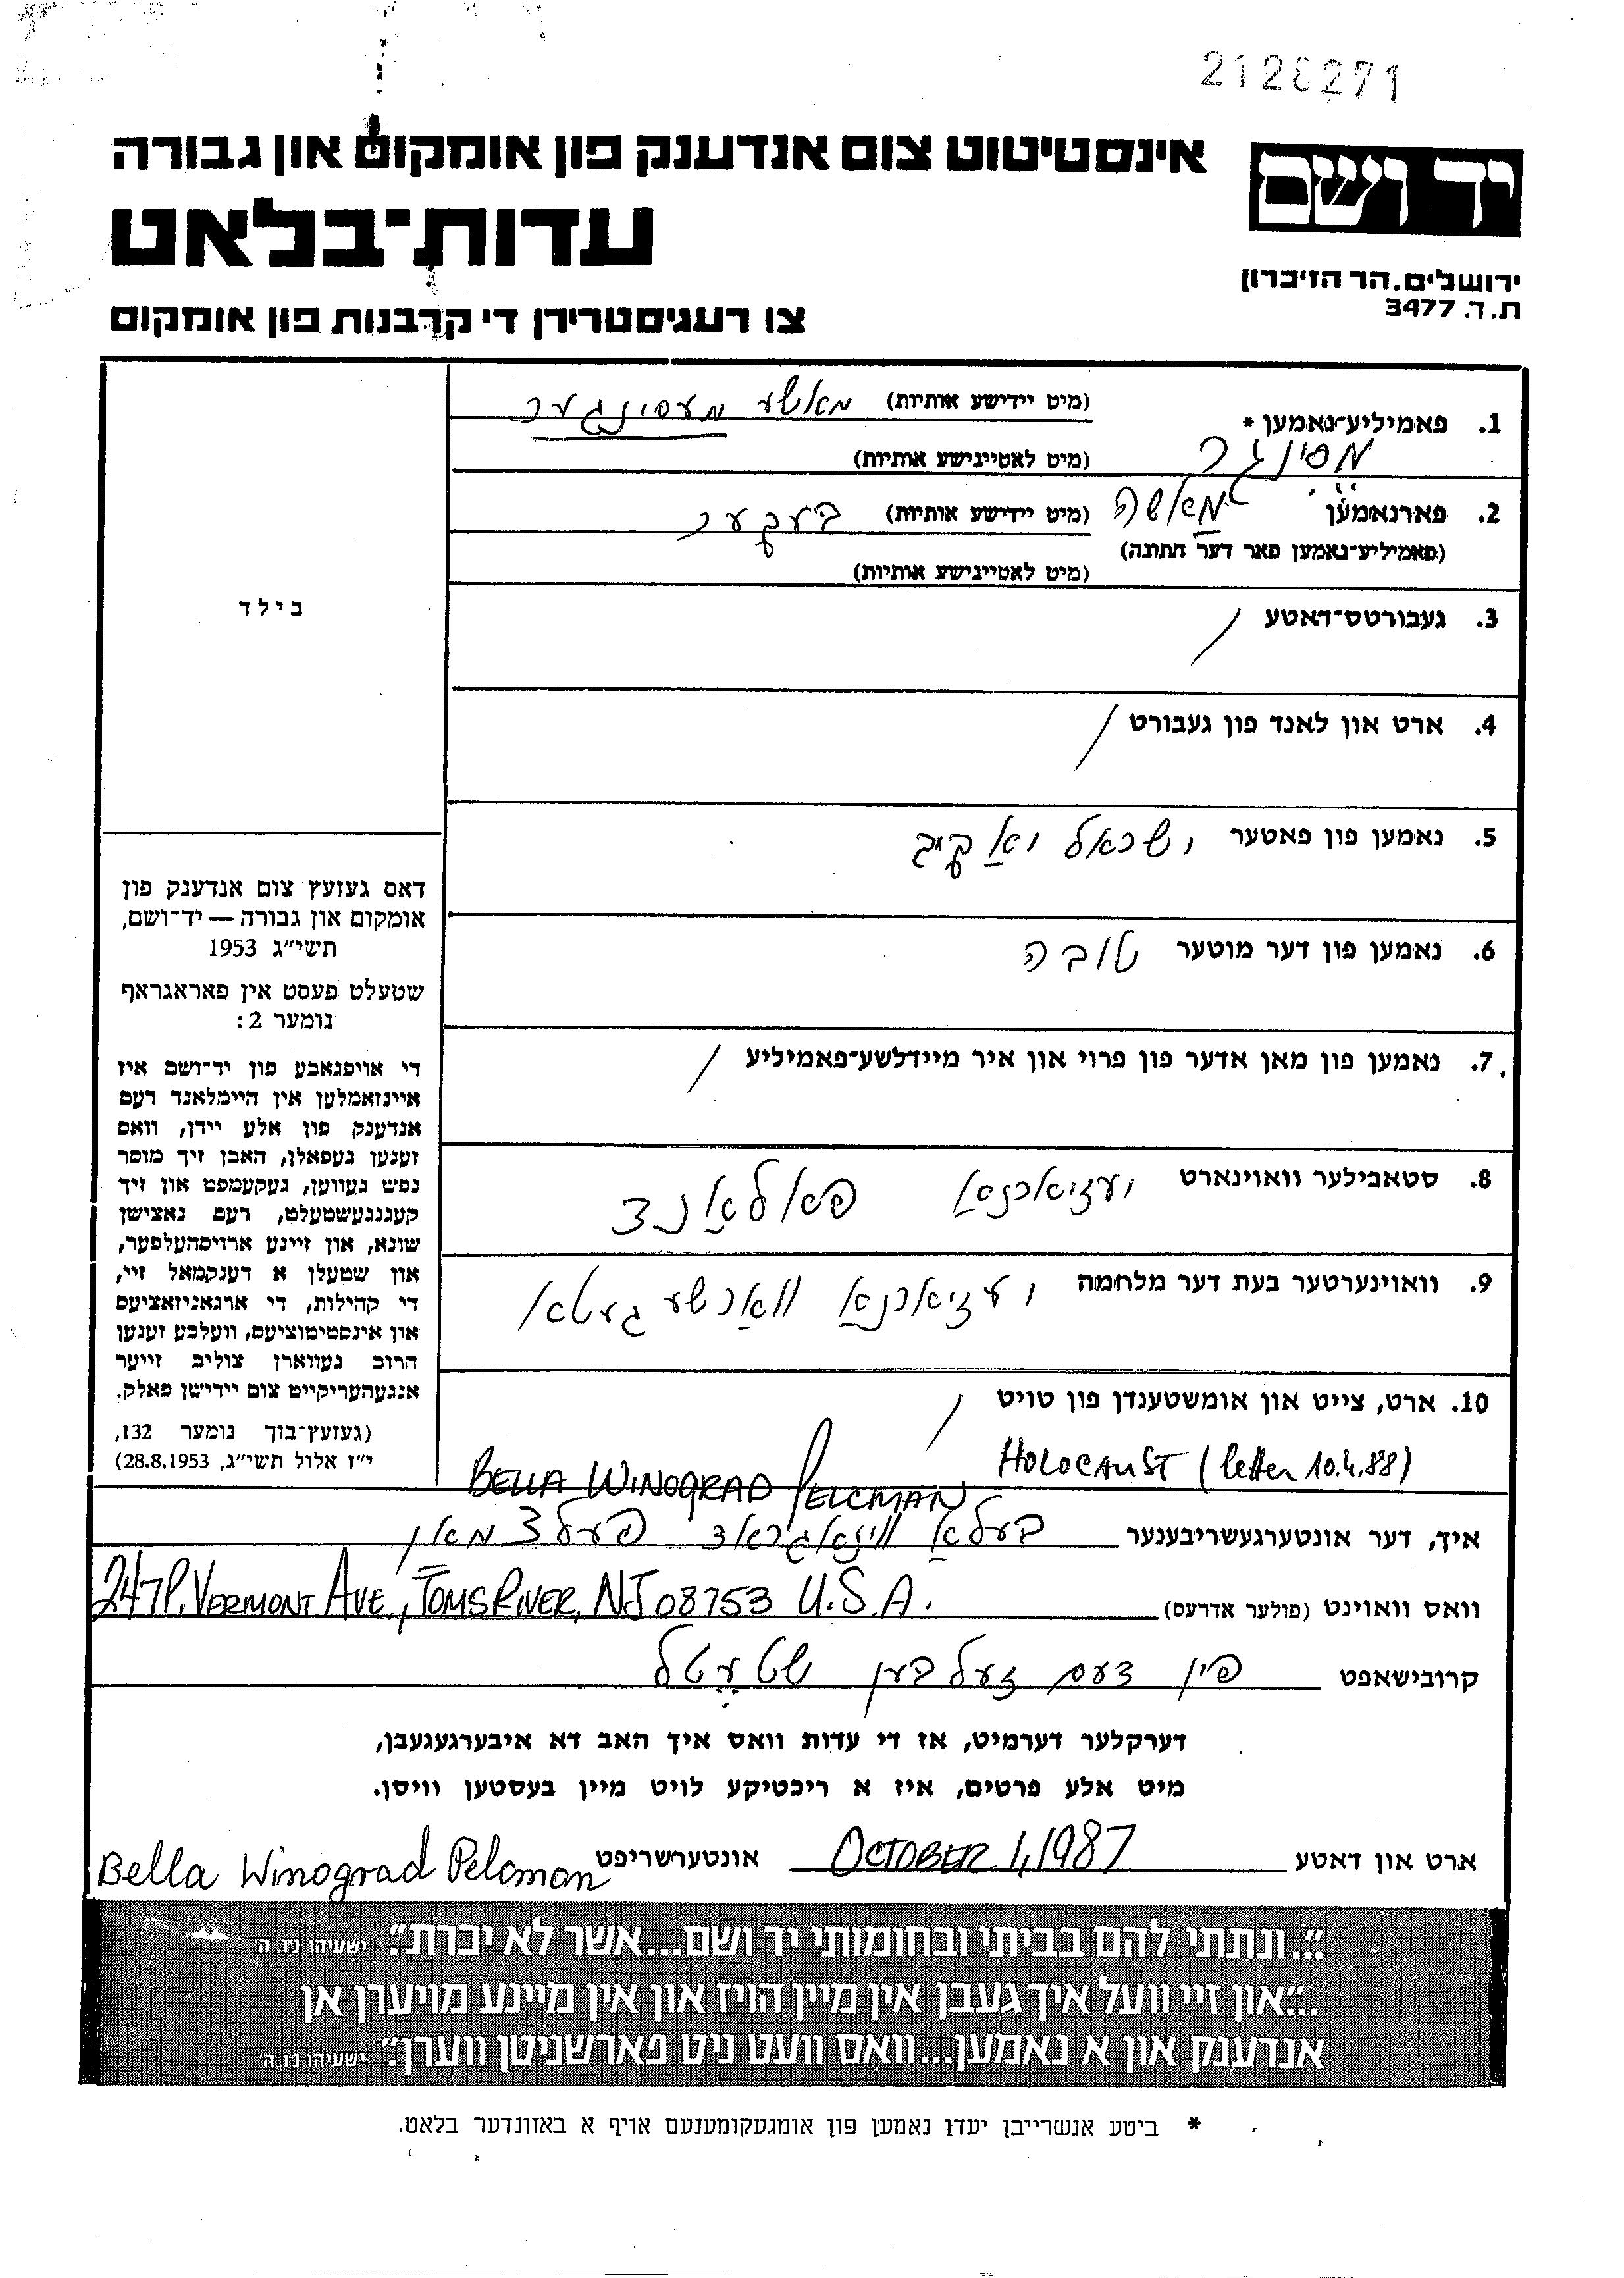 2128271
יד ושם
אינסטיטוט צום אנדענק פון אומקום און גבורה
עדות־בלאט
ירושלים. הר הזיכרון
ת.ד. 3477
צו רעגיסטרירן די קרבנות פון אומקום
1. פאמיליע־נאמען * (מיט יידישע אותיות) מאשע מעסינגער
מסינגר
(מיט לאטיינישע אותיות)
2. פארנאמען מאשה (מיט יידישע אותיות) בעקער
(פאמיליע־נאמען פאר דער חתונה)
(מיט לאטיינישע אותיות)
בילד
3. געבורטס־דאטע /
4. ארט און לאנד פון געבורט /
5. נאמען פון פאטער ישראל יאַקיב
6. נאמען פון דער מוטער טובה
7. נאמען פון מאן אדער פון פרוי און איר מיידלשע־פאמיליע /
8. סטאבילער וואוינארט יעזיארנאַ פאלאַנד
9. וואוינערטער בעת דער מלחמה יעזיארנאַ וואַרשע געטא
10. ארט, צייט און אומשטענדן פון טויט /
HOLOCAUST (letter 10.4.88)
דאס געזעץ צום אנדענק פון
אומקום און גבורה — יד־ושם,
תשי״ג 1953
שטעלט פעסט אין פאראגראף
נומער 2:
די אויפגאבע פון יד־ושם איז
איינזאמלען אין היימלאנד דעם
אנדענק פון אלע יידן, וואס
זענען געפאלן, האבן זיך מוסר
נפש געווען, געקעמפט און זיך
קעגנגעשטעלט, דעם נאצישן
שונא, און זיינע ארויסהעלפער,
און שטעלן א דענקמאל זיי,
די קהילות, די ארגאניזאציעס
און אינסטיטוציעס, וועלכע זענען
חרוב געווארן צוליב זייער
אנגעהעריקייט צום יידישן פאלק.
(געזעץ־בוך נומער 132,
י״ז אלול תשי״ג, 28.8.1953)
BELLA WINOGRAD PELCMAN
איך, דער אונטערגעשריבענער בעלאַ ווינאגראד פעלצמאן
וואס וואוינט (פולער אדרעס) 247P. VERMONT AVE., TOMS RIVER, NJ 08753 U.S.A.
קרובישאפט פין דעם זעלבען שטעטל
דערקלער דערמיט, אז די עדות וואס איך האב דא איבערגעגעבן,
מיט אלע פרטים, איז א ריכטיקע לויט מיין בעסטען וויסן.
ארט און דאטע OCTOBER 1, 1987 אונטערשריפט Bella Winograd Pelcman
״...ונתתי להם בביתי ובחומותי יד ושם...אשר לא יכרת״. ישעיהו נו, ה
״...און זיי וועל איך געבן אין מיין הויז און אין מיינע מויערן אן
אנדענק און א נאמען...וואס וועט ניט פארשניטן ווערן״. ישעיהו נו, ה
* ביטע אנשרייבן יעדן נאמען פון אומגעקומענעם אויף א באזונדער בלאט.